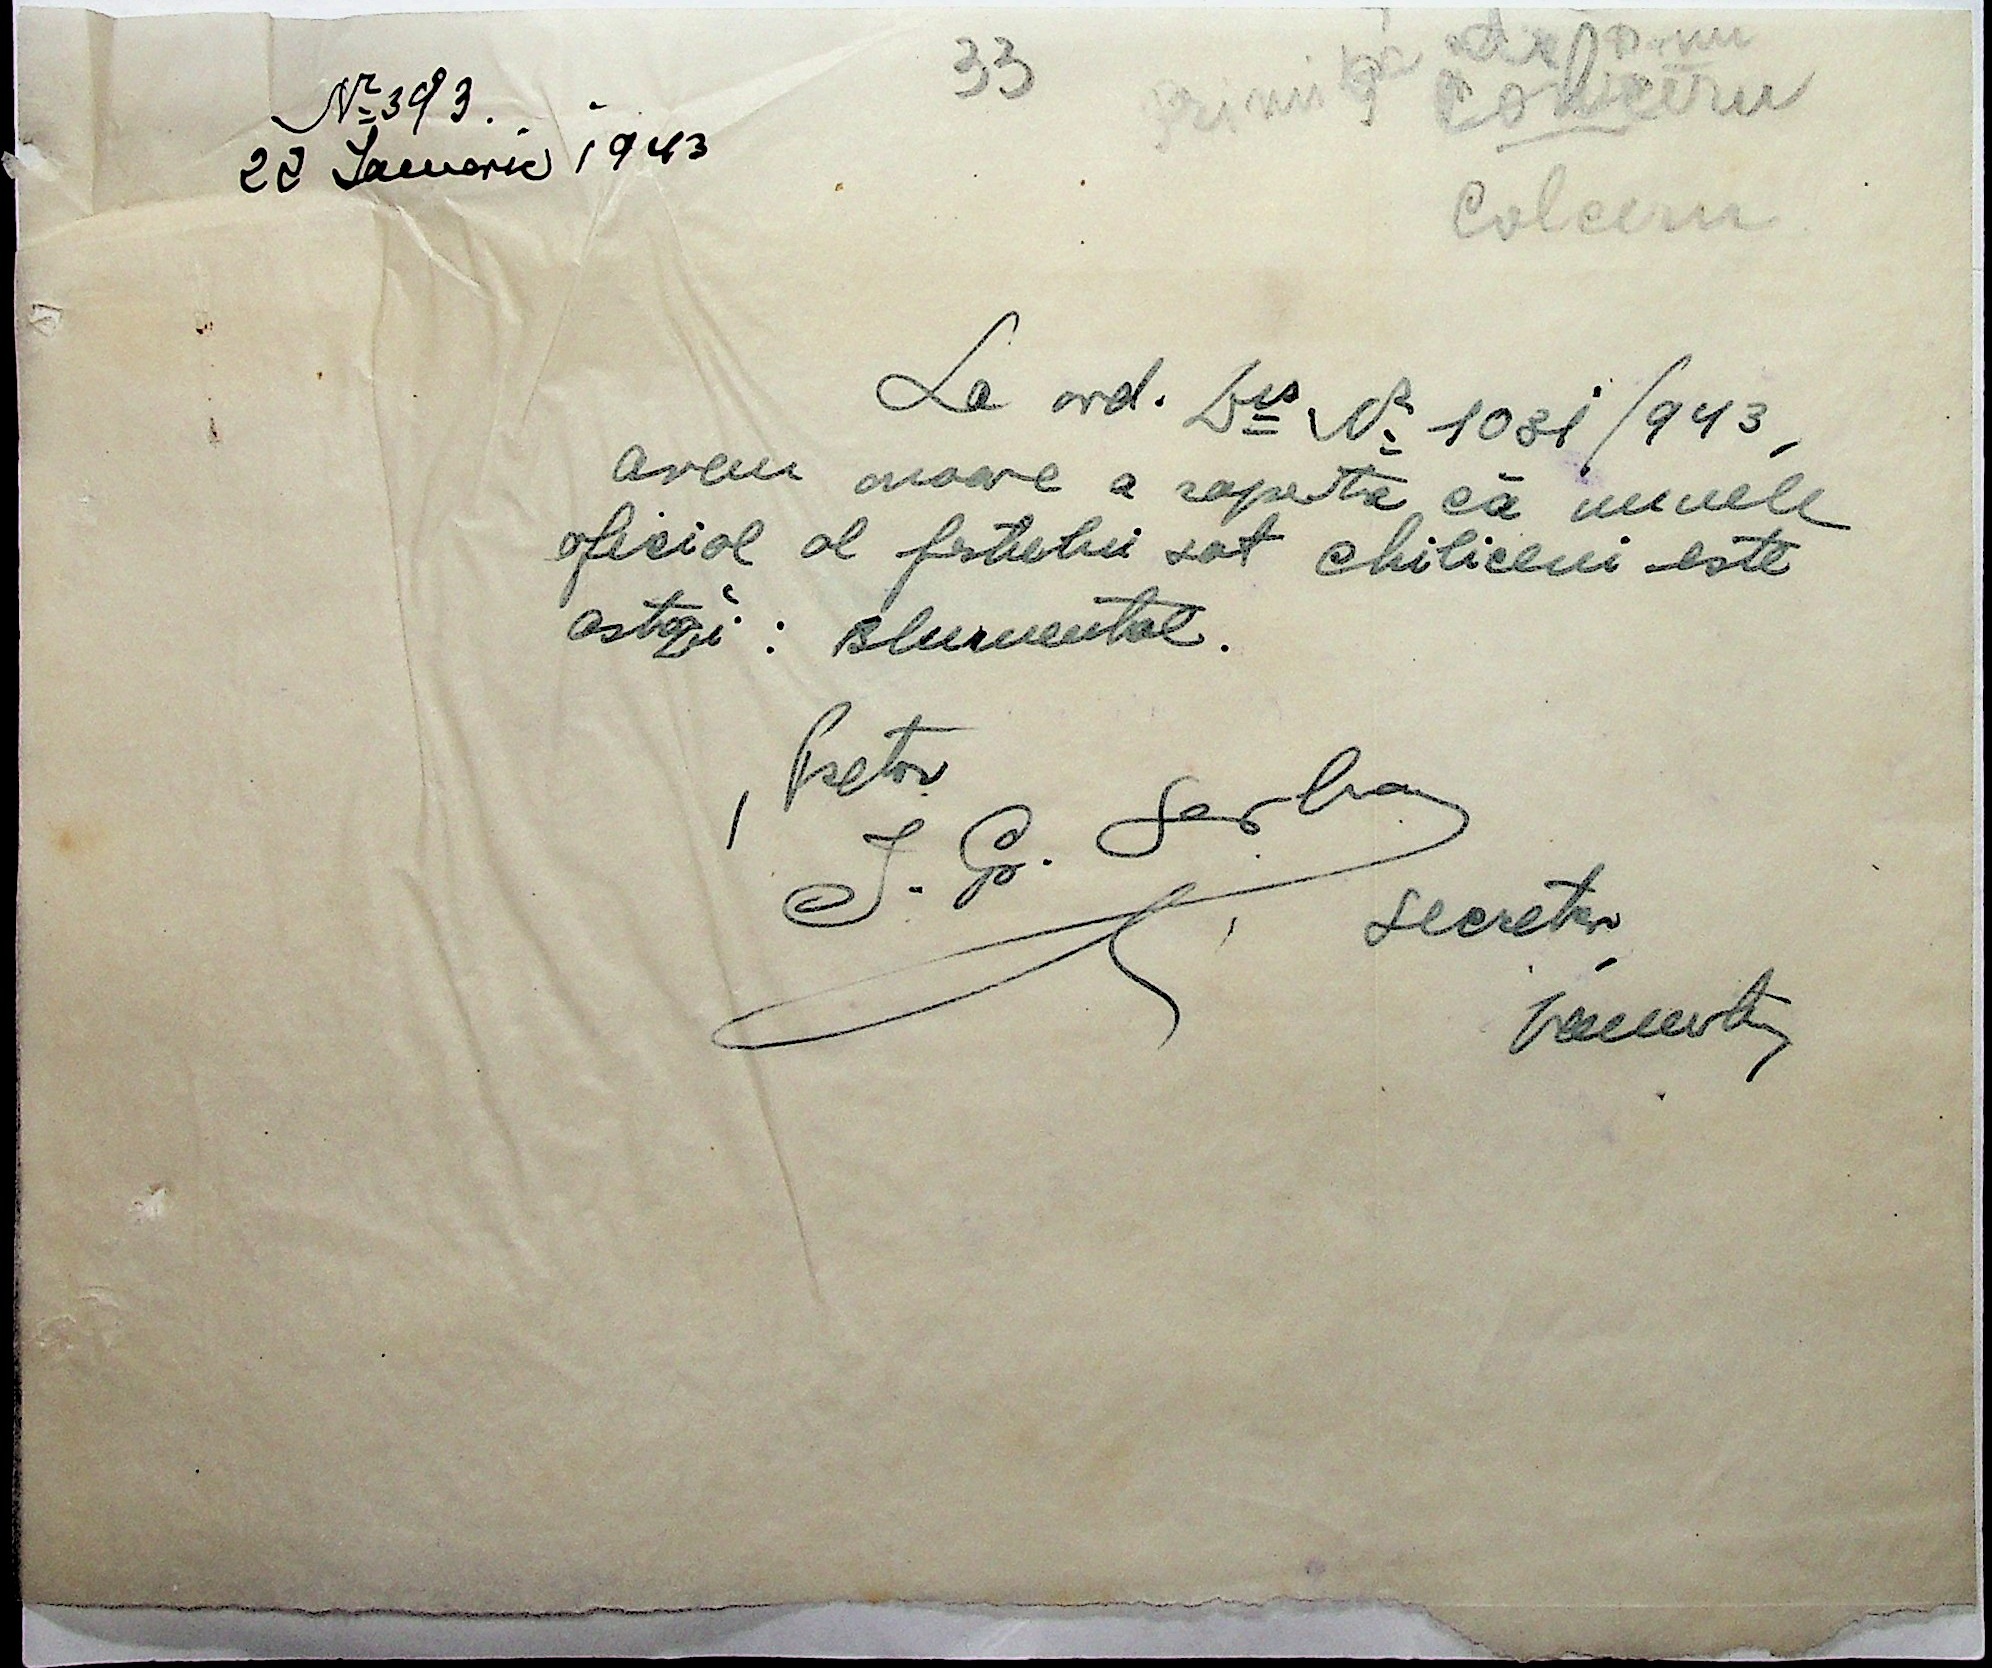 Nr. 393.
22 Ianuarie 1943
33
Colceru
La ord. Dvs Nr. 1031/943,
avem onoare a raporta că numele
oficial al fostului sat Chiliceni este
astăzi: Blumental.
Pretor
I. Gr. Serban
Secretar